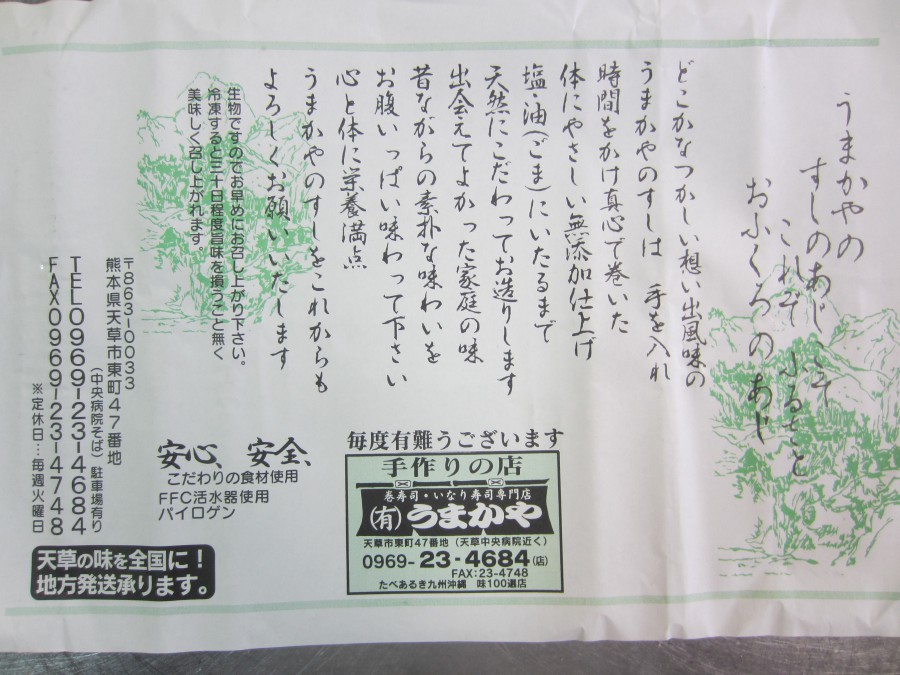 うまかやの
すしのあじこそ
これぞふるさと
おふくろのあじ
どこかなつかしい想い出風味の
うまかやのすしは 手を入れ
時間をかけ真心で巻いた
体にやさしい無添加仕上げ
塩・油(ごま)にいたるまで
天然にこだわってお造りします
出会えてよかった家庭の味
昔ながらの素朴な味わいを
お腹いっぱい味わって下さい
心と体に栄養満点
うまかやのすしをこれからも
よろしくお願いいたします
生物ですのでお早めにお召し上がり下さい。
冷凍すると三十日程度旨味を損うこと無く
美味しく召し上がれます。
〒863-0033
熊本県天草市東町47番地
(中央病院そば) 駐車場有り
TEL0969-23-4684
FAX0969-23-4748
※定休日…毎週火曜日
安心、安全、
こだわりの食材使用
FFC活水器使用
パイロゲン
天草の味を全国に!
地方発送承ります。
毎度有難うございます
手作りの店
巻寿司・いなり寿司専門店
(有)うまかや
天草市東町47番地(天草中央病院近く)
0969-23-4684(店)
FAX:23-4748
たべあるき九州沖縄 味100選店